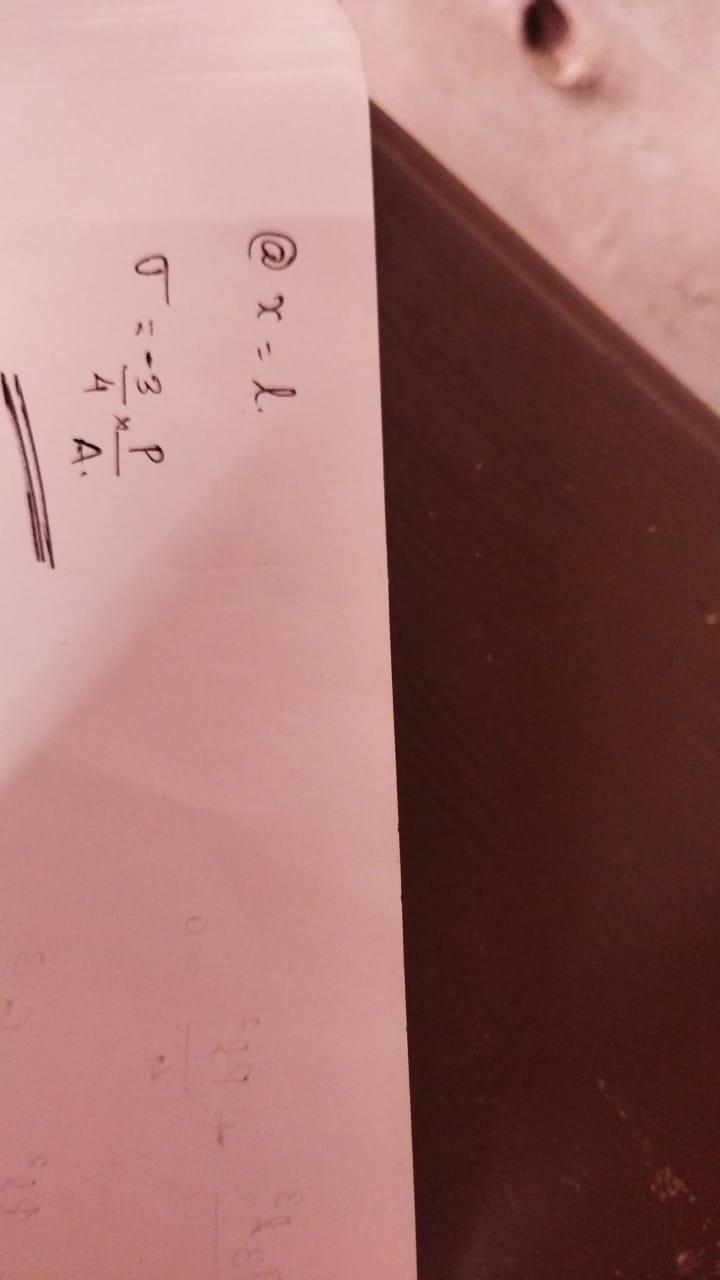 @ x = l.
σ = -3/4 × P/A.